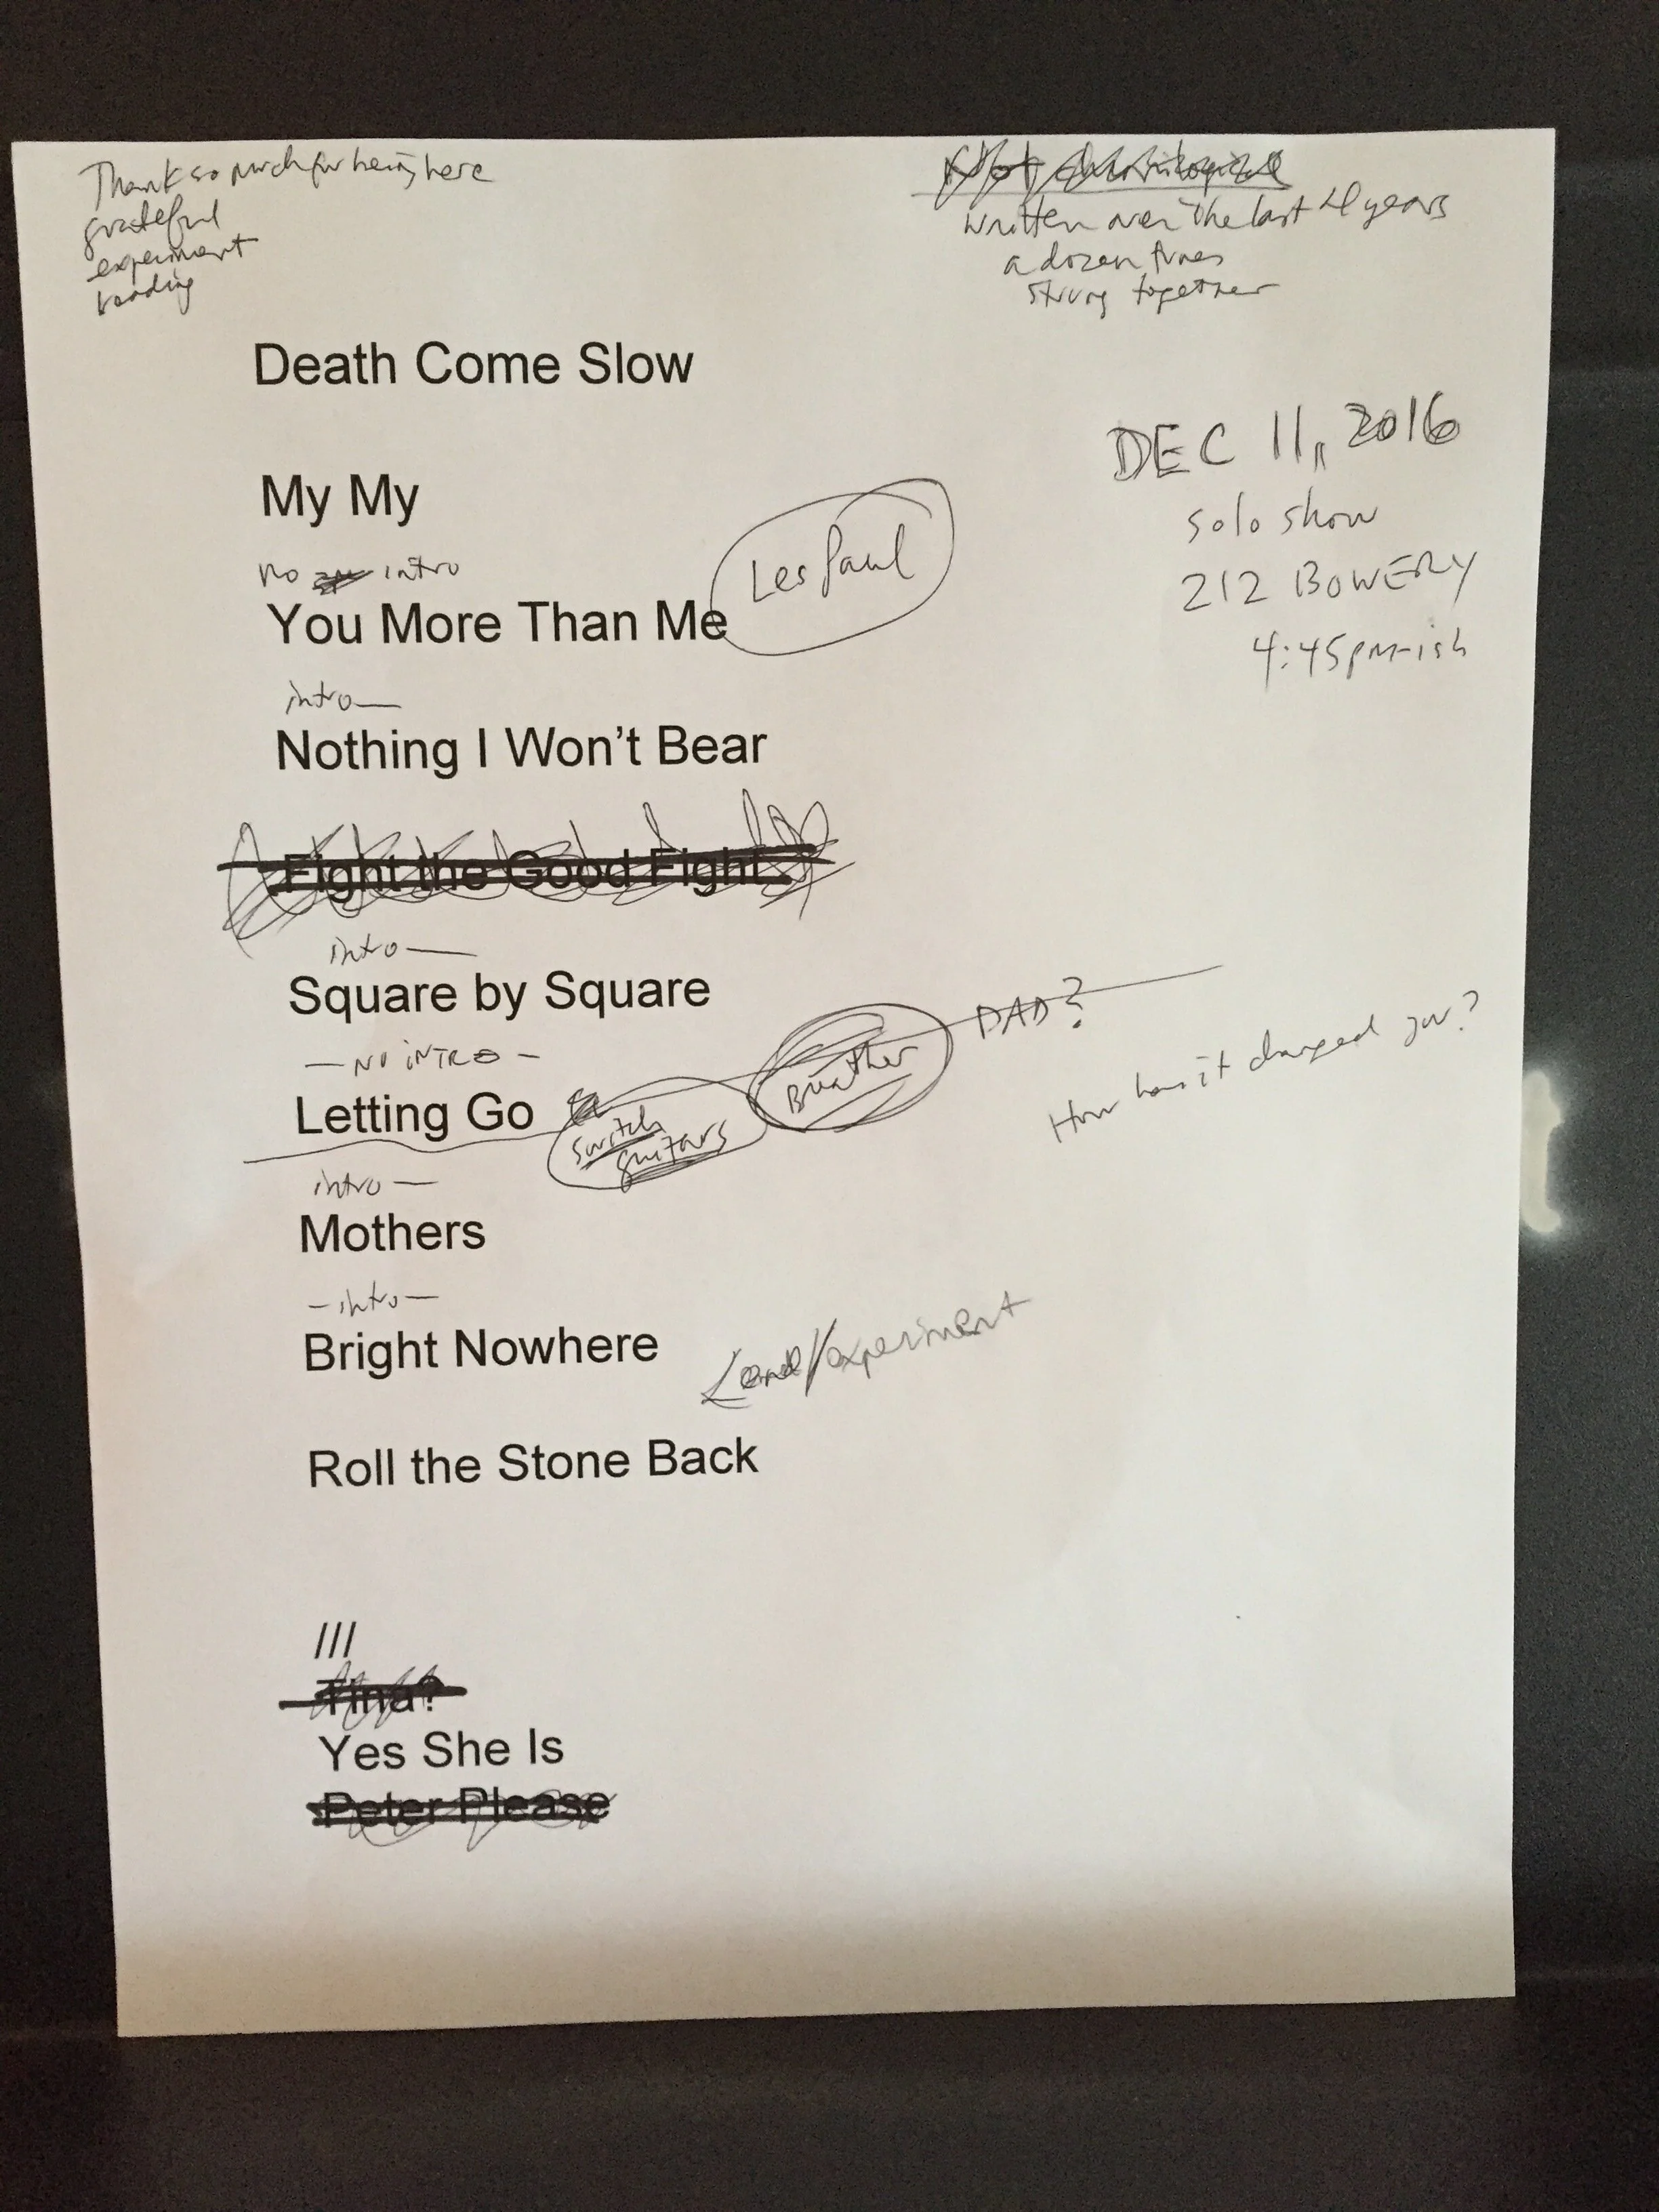 Thanks so much for being here
grateful
experiment
reading
written over the last 4 years
a dozen tunes
strung together
Death Come Slow
DEC 11, 2016
solo show
212 BOWERY
4:45pm-ish
My My
Les Paul
no intro
You More Than Me
intro—
Nothing I Won't Bear
Fight the Good Fight
intro—
Square by Square
— NO INTRO —
Letting Go
switch
guitars
Breather
DAD?
How has it changed you?
intro—
Mothers
—intro—
Bright Nowhere
Land/experiment
Roll the Stone Back
///
Tina?
Yes She Is
Peter Please